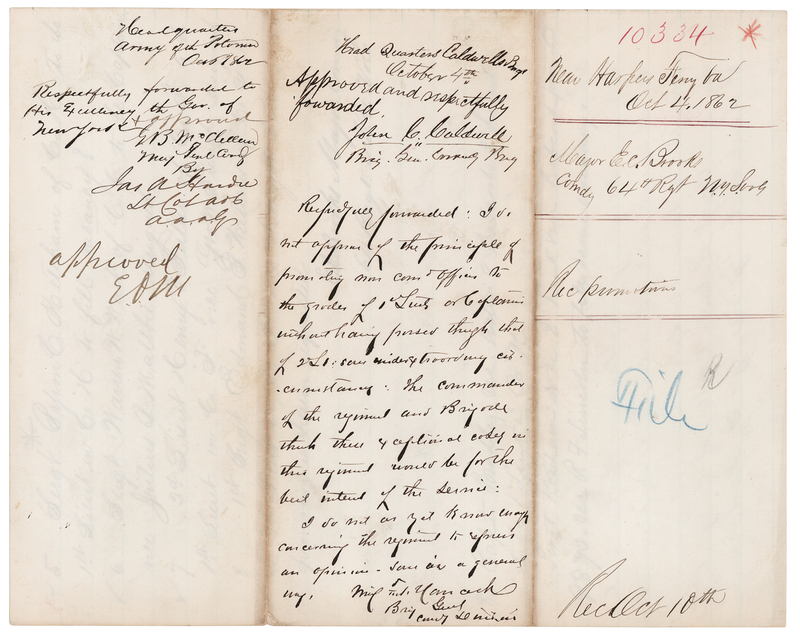 Head quarters
Army of the Potomac
Oct 1862
Respectfully forwarded to
His Excellency the Gov. of
New York & approved
G B. McClellan
Maj Genl Comdg
By
Jas A Hardie
Lt Col ADC
a.a.a.G
approved
E D M
Head Quarters Caldwell's Brig.
October 4th
Approved and respectfully
forwarded.
John C. Caldwell
Brig. Gen. Comdg Brig
Respectfully forwarded: I do
not approve of the principle of
promoting non comd officers to
the grades of 1st Lieuts or Captains
without having passed through that
of 2d Lt: save under extraordinary cir-
-cumstances: The commander
of the regiment and Brigade
think these exceptional cases in
this regiment would be for the
best interest of the service:
I do not as yet know enough
concerning the regiment to express
an opinion - save in a general
way. Winf. S. Hancock
Brig Genl
Comdg Division
10334
Near Harpers Ferry Va
Oct 4. 1862
Major E C Brooks
Comdg 64th Rgt N.Y. Vols
Rec promotions
File
R
Rec Oct 10th